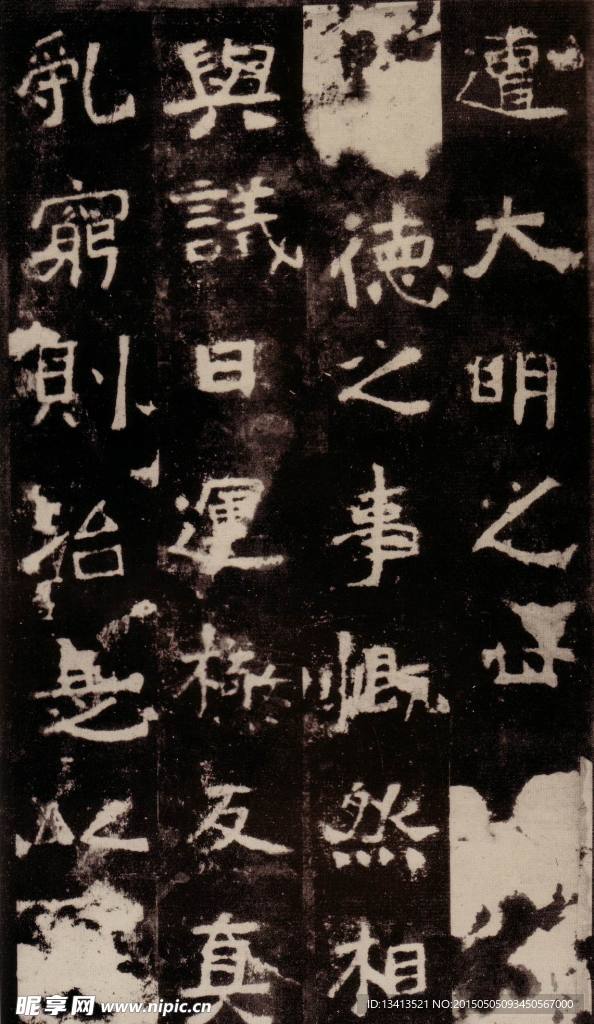 遭大明之世
德之事慨然相
與議曰運極反真
亂窮則治是以
昵享网 www.nipic.cn
ID:13413521 NO:20150505093450567000